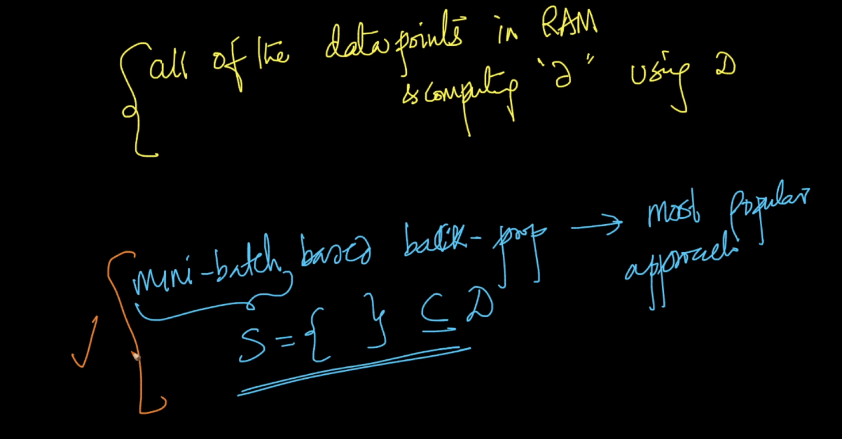 all of the datapoints in RAM
& computing "∂" using D
mini-batch based back-prop → most popular
approach
S = { } ⊆ D